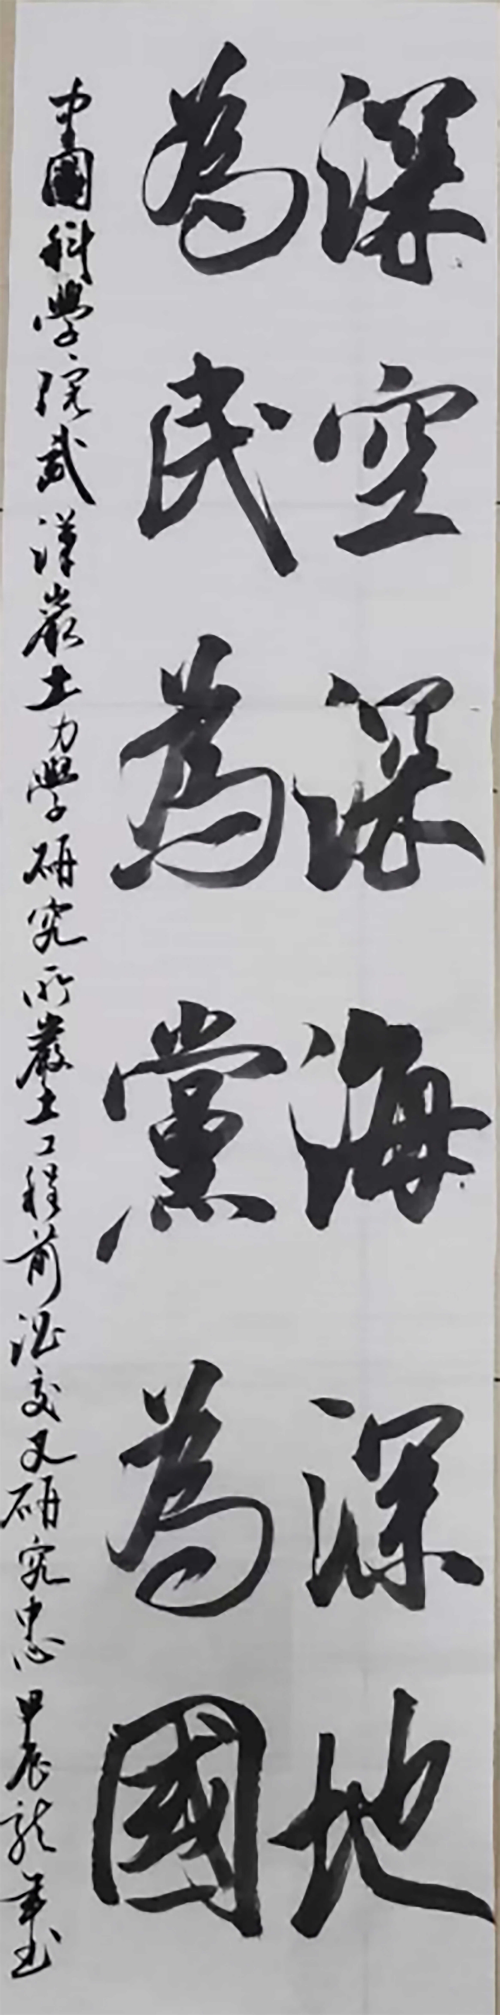 深空深海深地
為民為黨為國
中國科學院武漢巖土力學研究所巖土工程前沿交叉研究中心甲辰龍年書